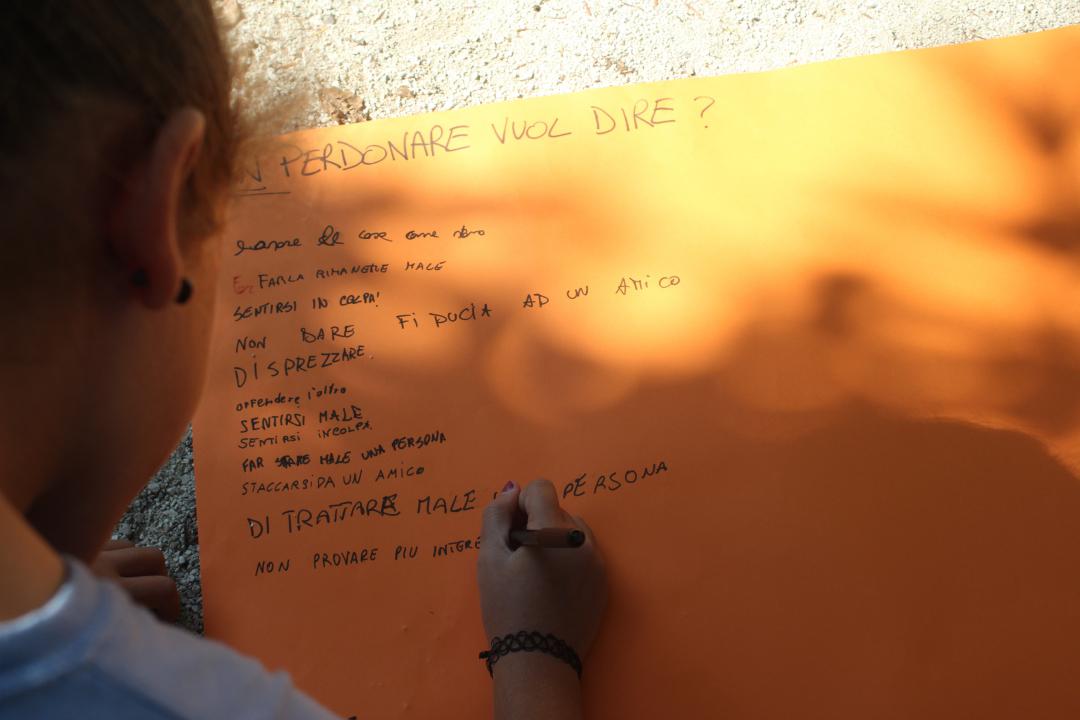 N PERDONARE VUOL DIRE ?
le cose come
FARLA RIMANERE MALE
SENTIRSI IN COLPA!
NON DARE FIDUCIA AD UN AMICO
DISPREZZARE.
offendere l'altro
SENTIRSI MALE
SENTIRSI INCOLPA.
FAR STARE MALE UNA PERSONA
STACCARSI DA UN AMICO
DI TRATTARE MALE PERSONA
NON PROVARE PIU INTERE